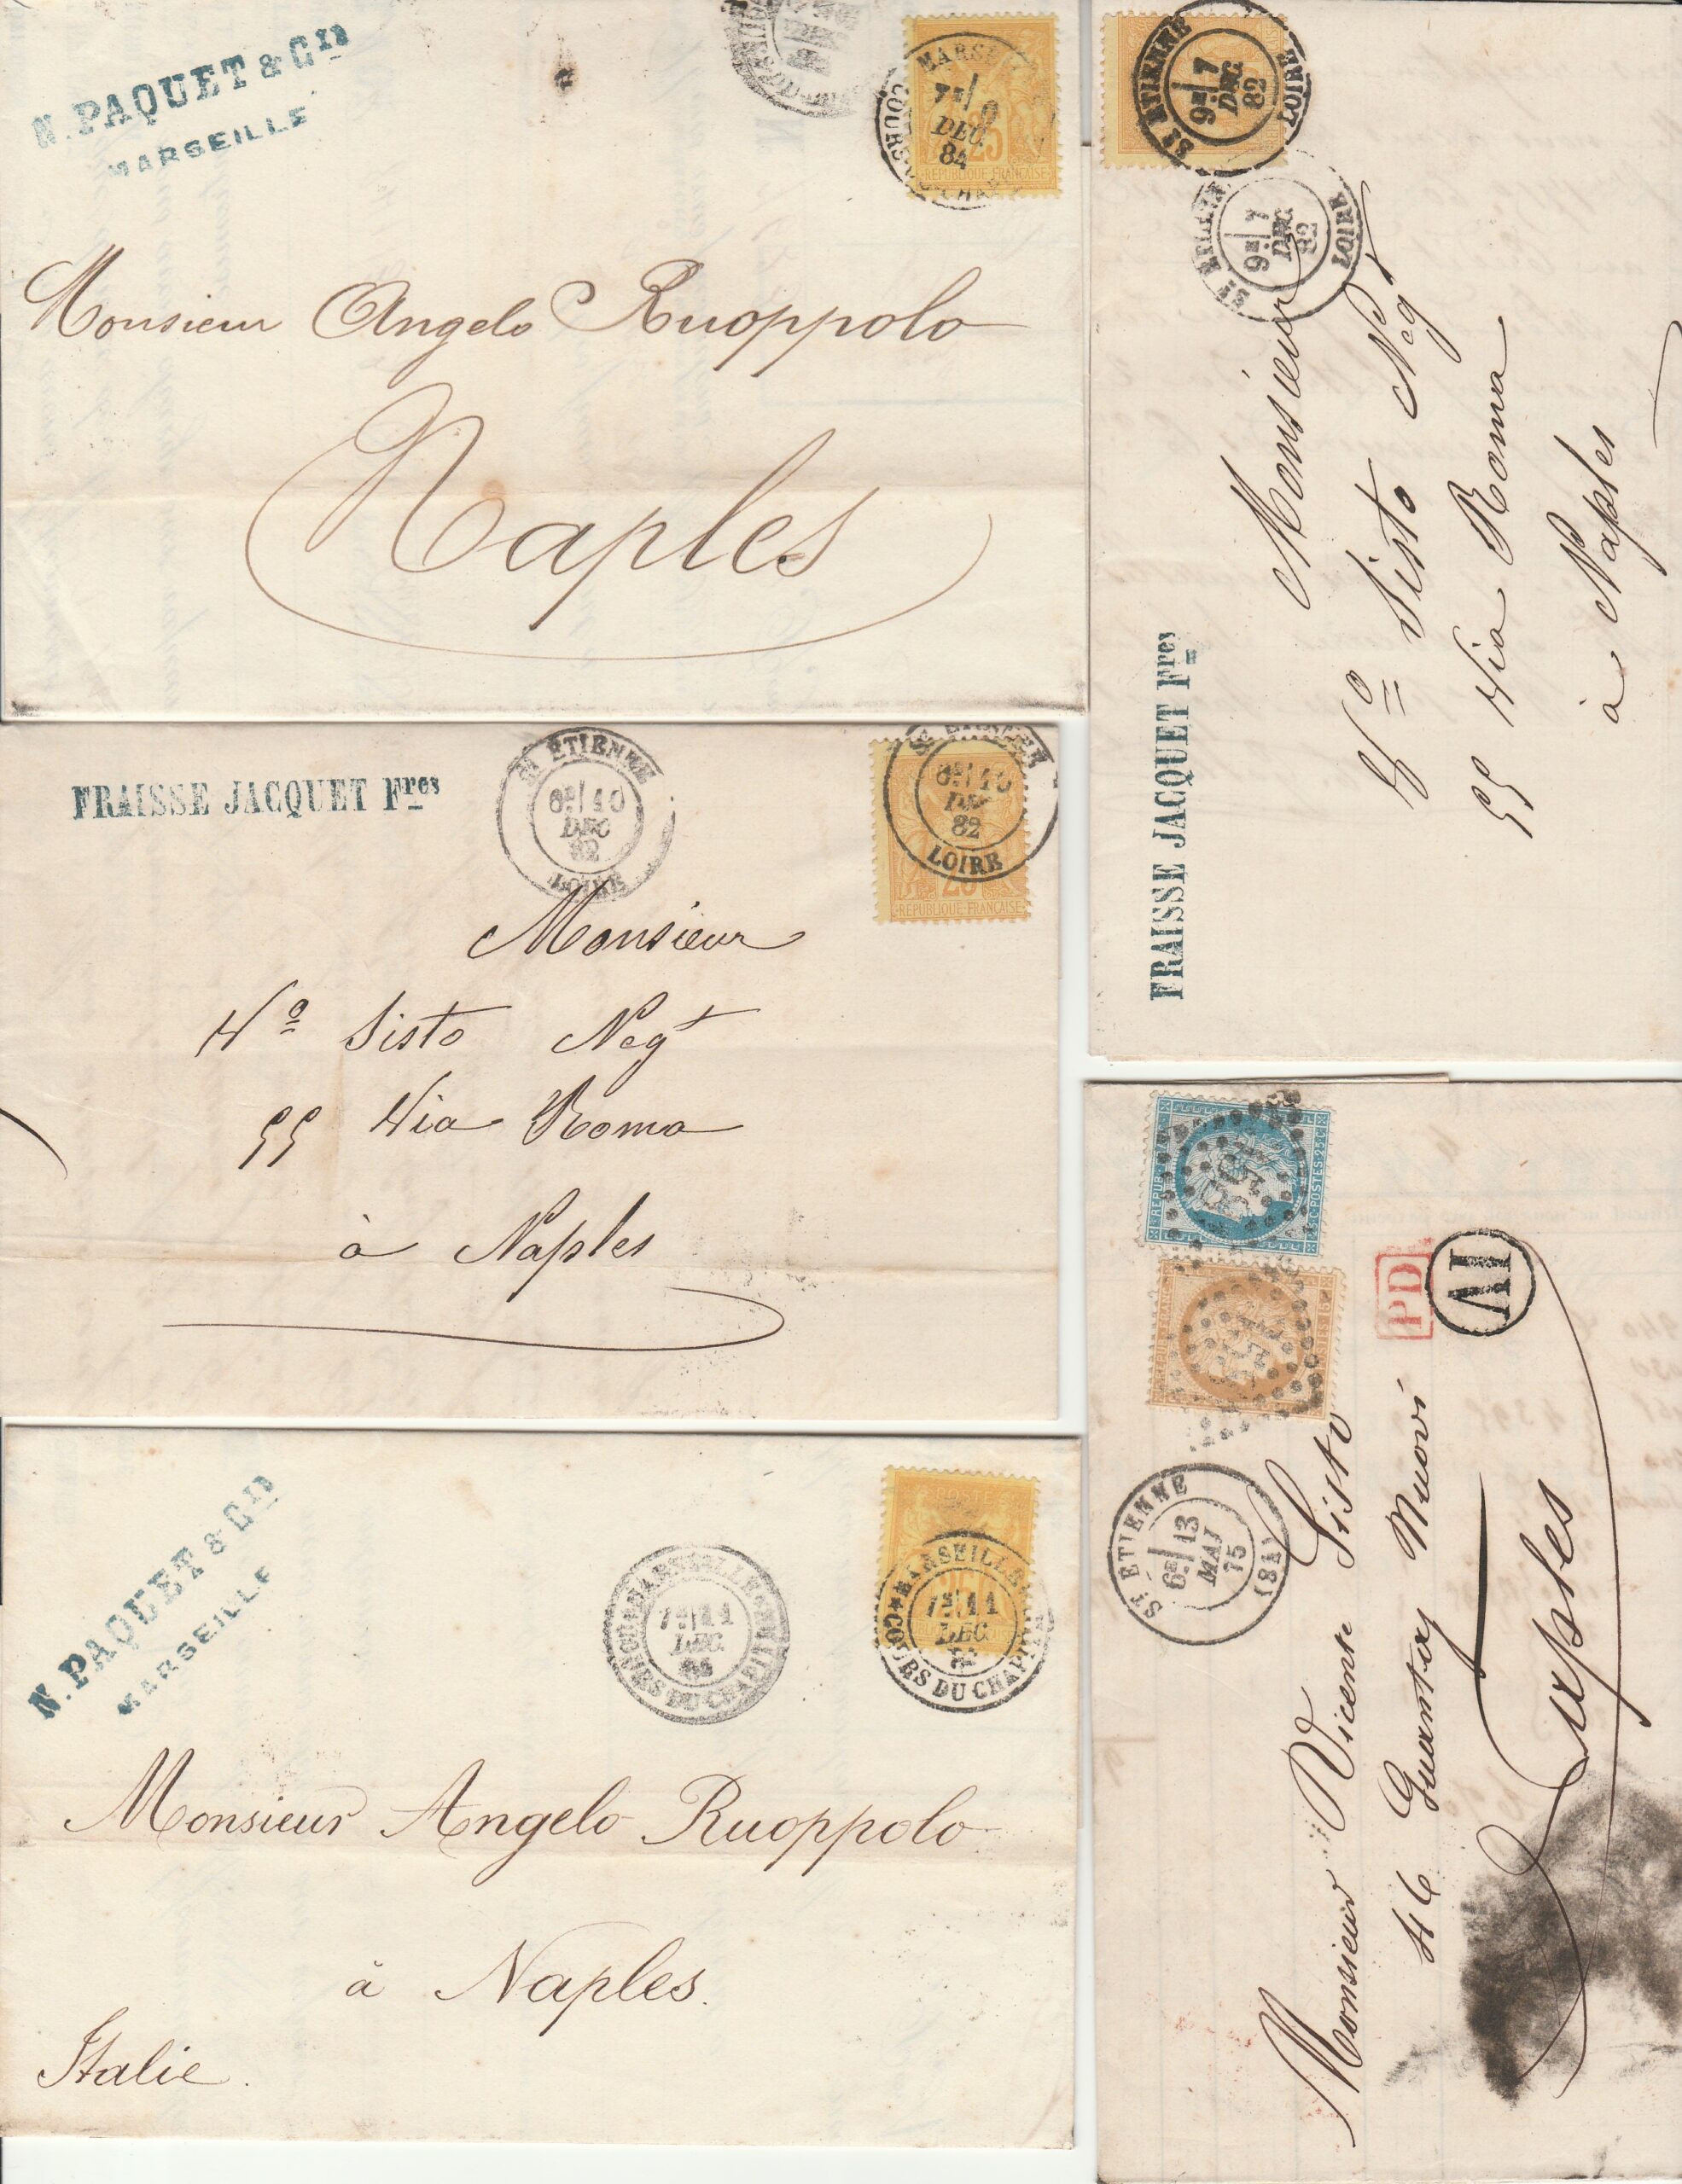 N. PAQUET & Cie
MARSEILLE
MARSEILLE
7E
DEC.
84
25
REPUBLIQUE FRANÇAISE
Monsieur Angelo Ruoppolo
Naples
FRAISSE JACQUET Fres
ST ETIENNE
10
DEC
82
LOIRE
10
82
LOIRE
25
REPUBLIQUE FRANÇAISE
Monsieur
Vo Sisto Negt
55 Via Roma
à Naples
N. PAQUET & Cie
MARSEILLE
MARSEILLE
11
DEC.
COURS DU CHAPITRE
MARSEILLE
11
DEC.
COURS DU CHAPITRE
Monsieur Angelo Ruoppolo
à Naples.
Italie.
ST ETIENNE
9E 7
DEC.
82
LOIRE
ST ETIENNE
9E 7
DEC.
82
LOIRE
FRAISSE JACQUET Fres
Monsieur
Vo Sisto Negt
55 Via Roma
à Naples
PD
ST ETIENNE
6E 13
MAI
75
(84)
Monsieur Vicente Sisto
46 Guantay Nuovi
Naples